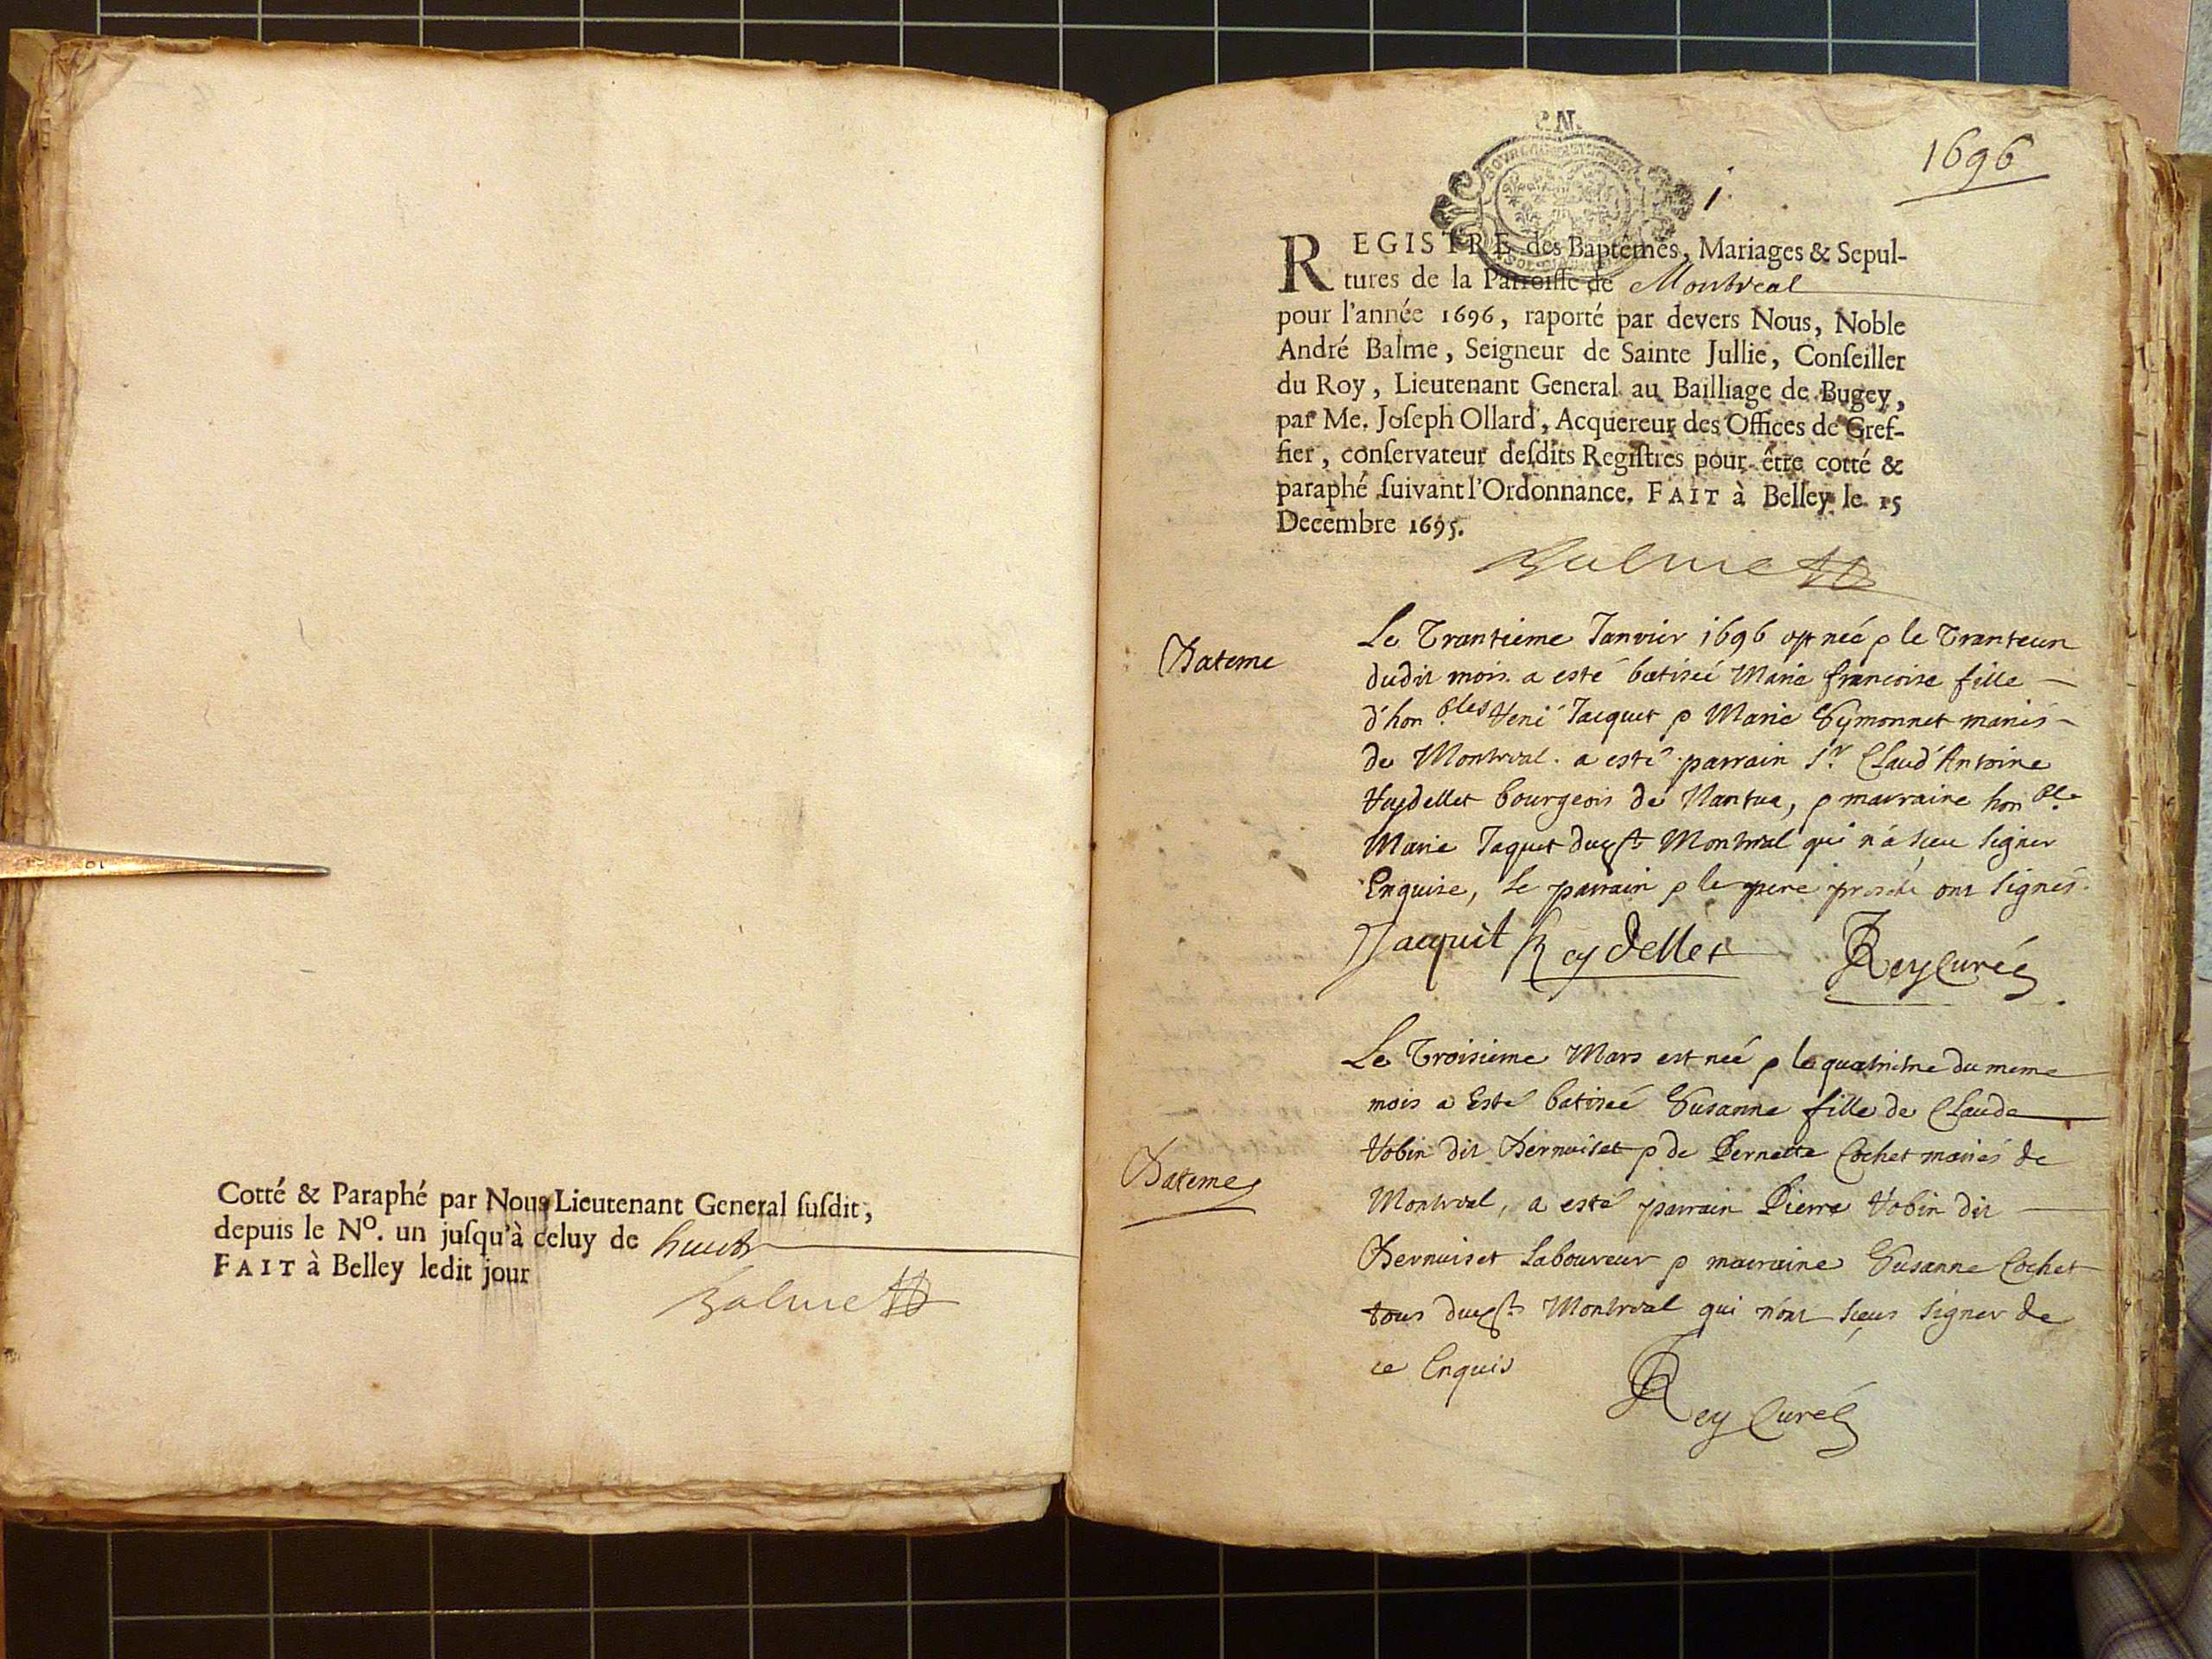 Cotté & Paraphé par Nous Lieutenant General ſuſdit,
depuis le No. un juſqu'à celuy de huict
FAIT à Belley ledit jour
Balme
1696
1.
REGISTRE des Baptêmes, Mariages & Sepul-
tures de la Parroiſſe de Montreal
pour l'année 1696, raporté par devers Nous, Noble
André Balme, Seigneur de Sainte Jullie, Conſeiller
du Roy, Lieutenant General au Bailliage de Bugey,
par Me. Joſeph Ollard, Acquereur des Offices de Gref-
fier, conſervateur deſdits Regiſtres pour être cotté &
paraphé ſuivant l'Ordonnance. FAIT à Belley le 15
Decembre 1695.
Balme
Bateme
Le Trantieme Janvier 1696 est neé & le Tranteun
dudit mois a esté batiseé Marie francoise fille
d'honbles René Jacquet & Marie Symonnet mariés
de Montreal. a esté parrain Sr. Claud'Antoine
Reydellet bourgeois de Nantua, & marraine honble
Marie Jaquet dudt Montreal qui n'a sceu signer
Enquise, Le parrain & le pere ont signés.
Jacquit Reydellet Rey Curé
Bateme
Le Troisieme Mars est neé & le quatrieme du meme
mois a Esté batiseé Susanne fille de Claude
Robin dit Bernuiset & de Pernette Cochet mariés de
Montreal, a esté parrain Pierre Robin dit
Bernuiset Laboureur & marraine Susanne Cochet
tous dudt Montreal qui n'ont sceus signer de
ce Enquis
Rey Curé